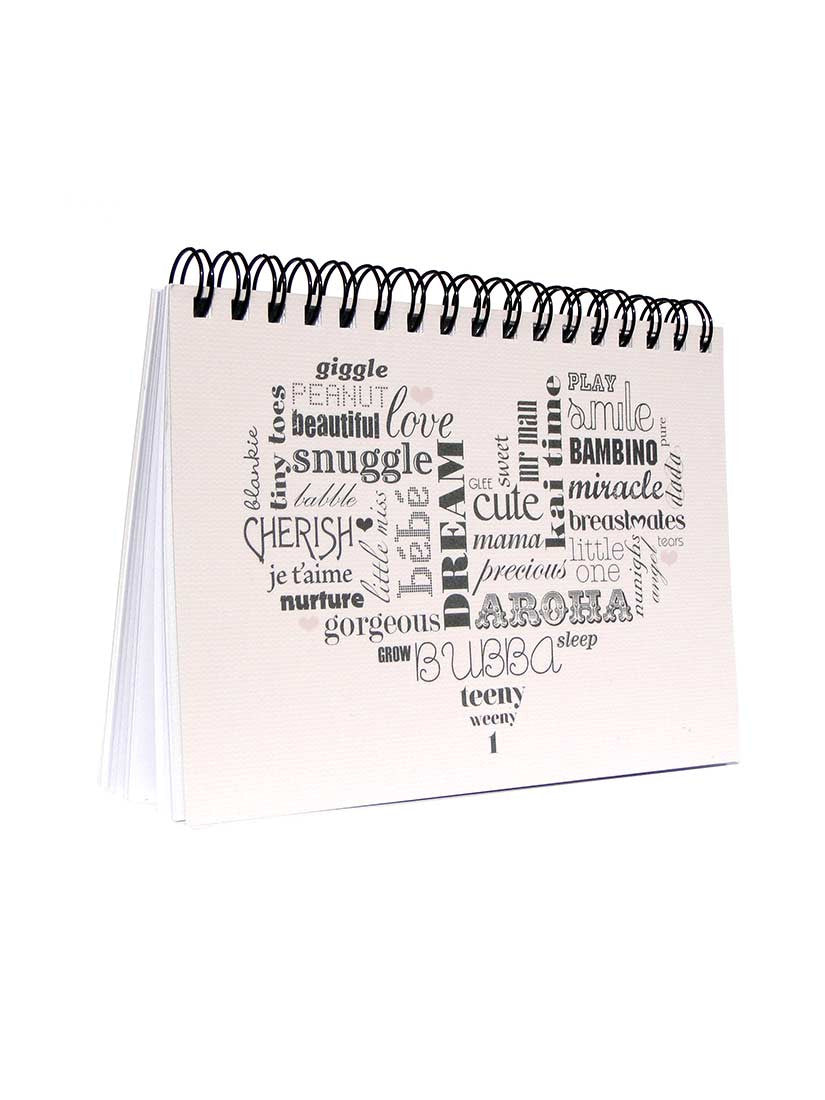 giggle
PEANUT
beautiful
love
blankie
tiny toes
snuggle
babble
little miss
bébé
DREAM
CHERISH
je t'aime
nurture
gorgeous
GLEE
sweet
mr man
kai time
PLAY
smile
BAMBINO
pure
cute
miracle
dada
mama
breastmates
precious
little
one
nunighs
angel
tears
AROHA
GROW
BUBBA
sleep
teeny
weeny
1